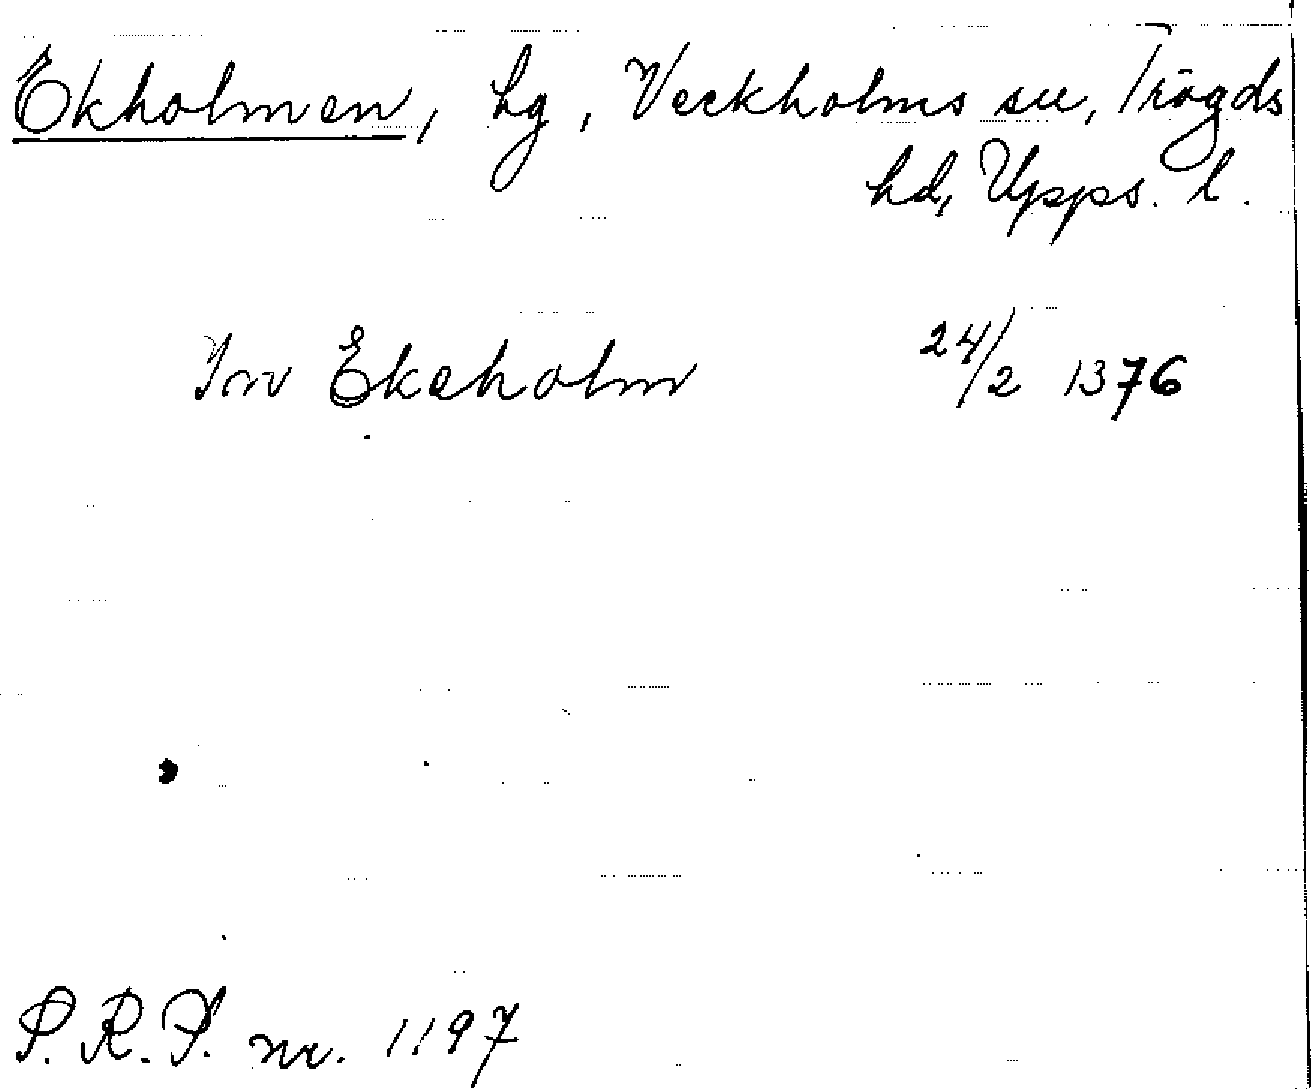 Ekholmen, hg, Veckholms sn, Trögds
hd, Upps. l.
In Ekeholm 24/2 1376
P. R. P. nr. 1197